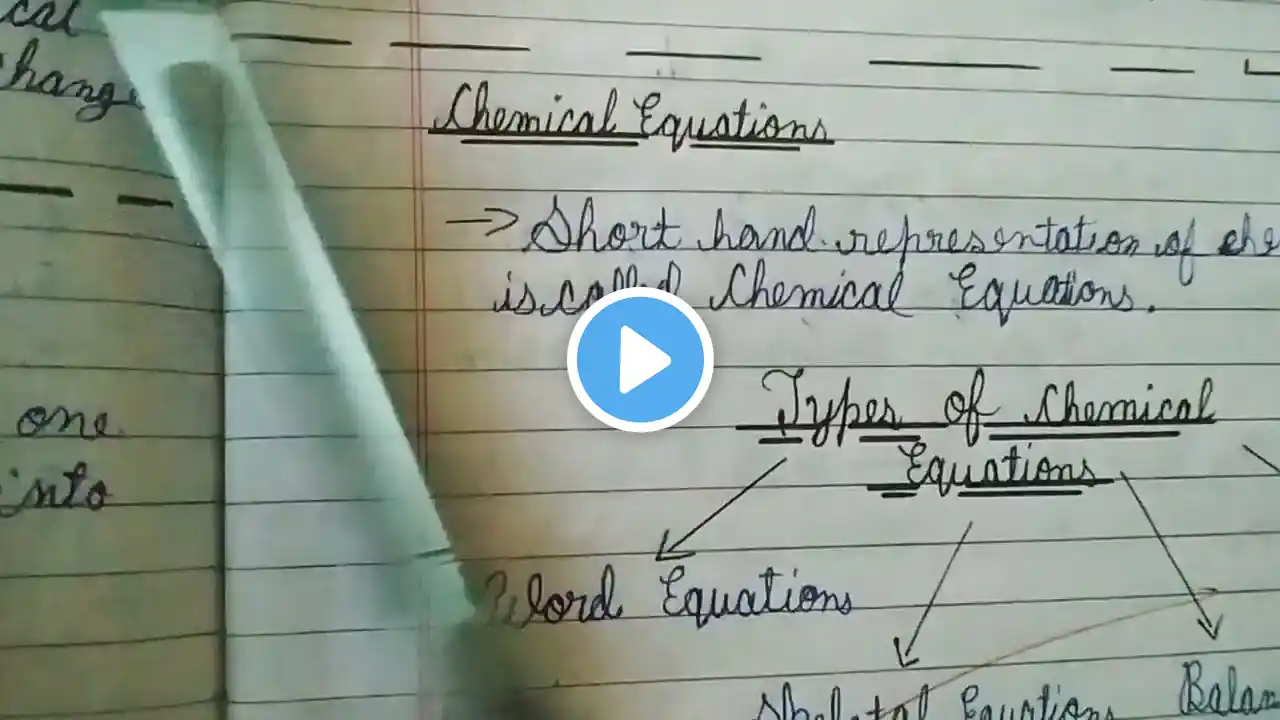 Chemical Equations
→ Short hand representation of che
is called Chemical Equations.
Types of Chemical
Equations
one
into
Word Equations
Skeletal Equations Balan
cal
hange